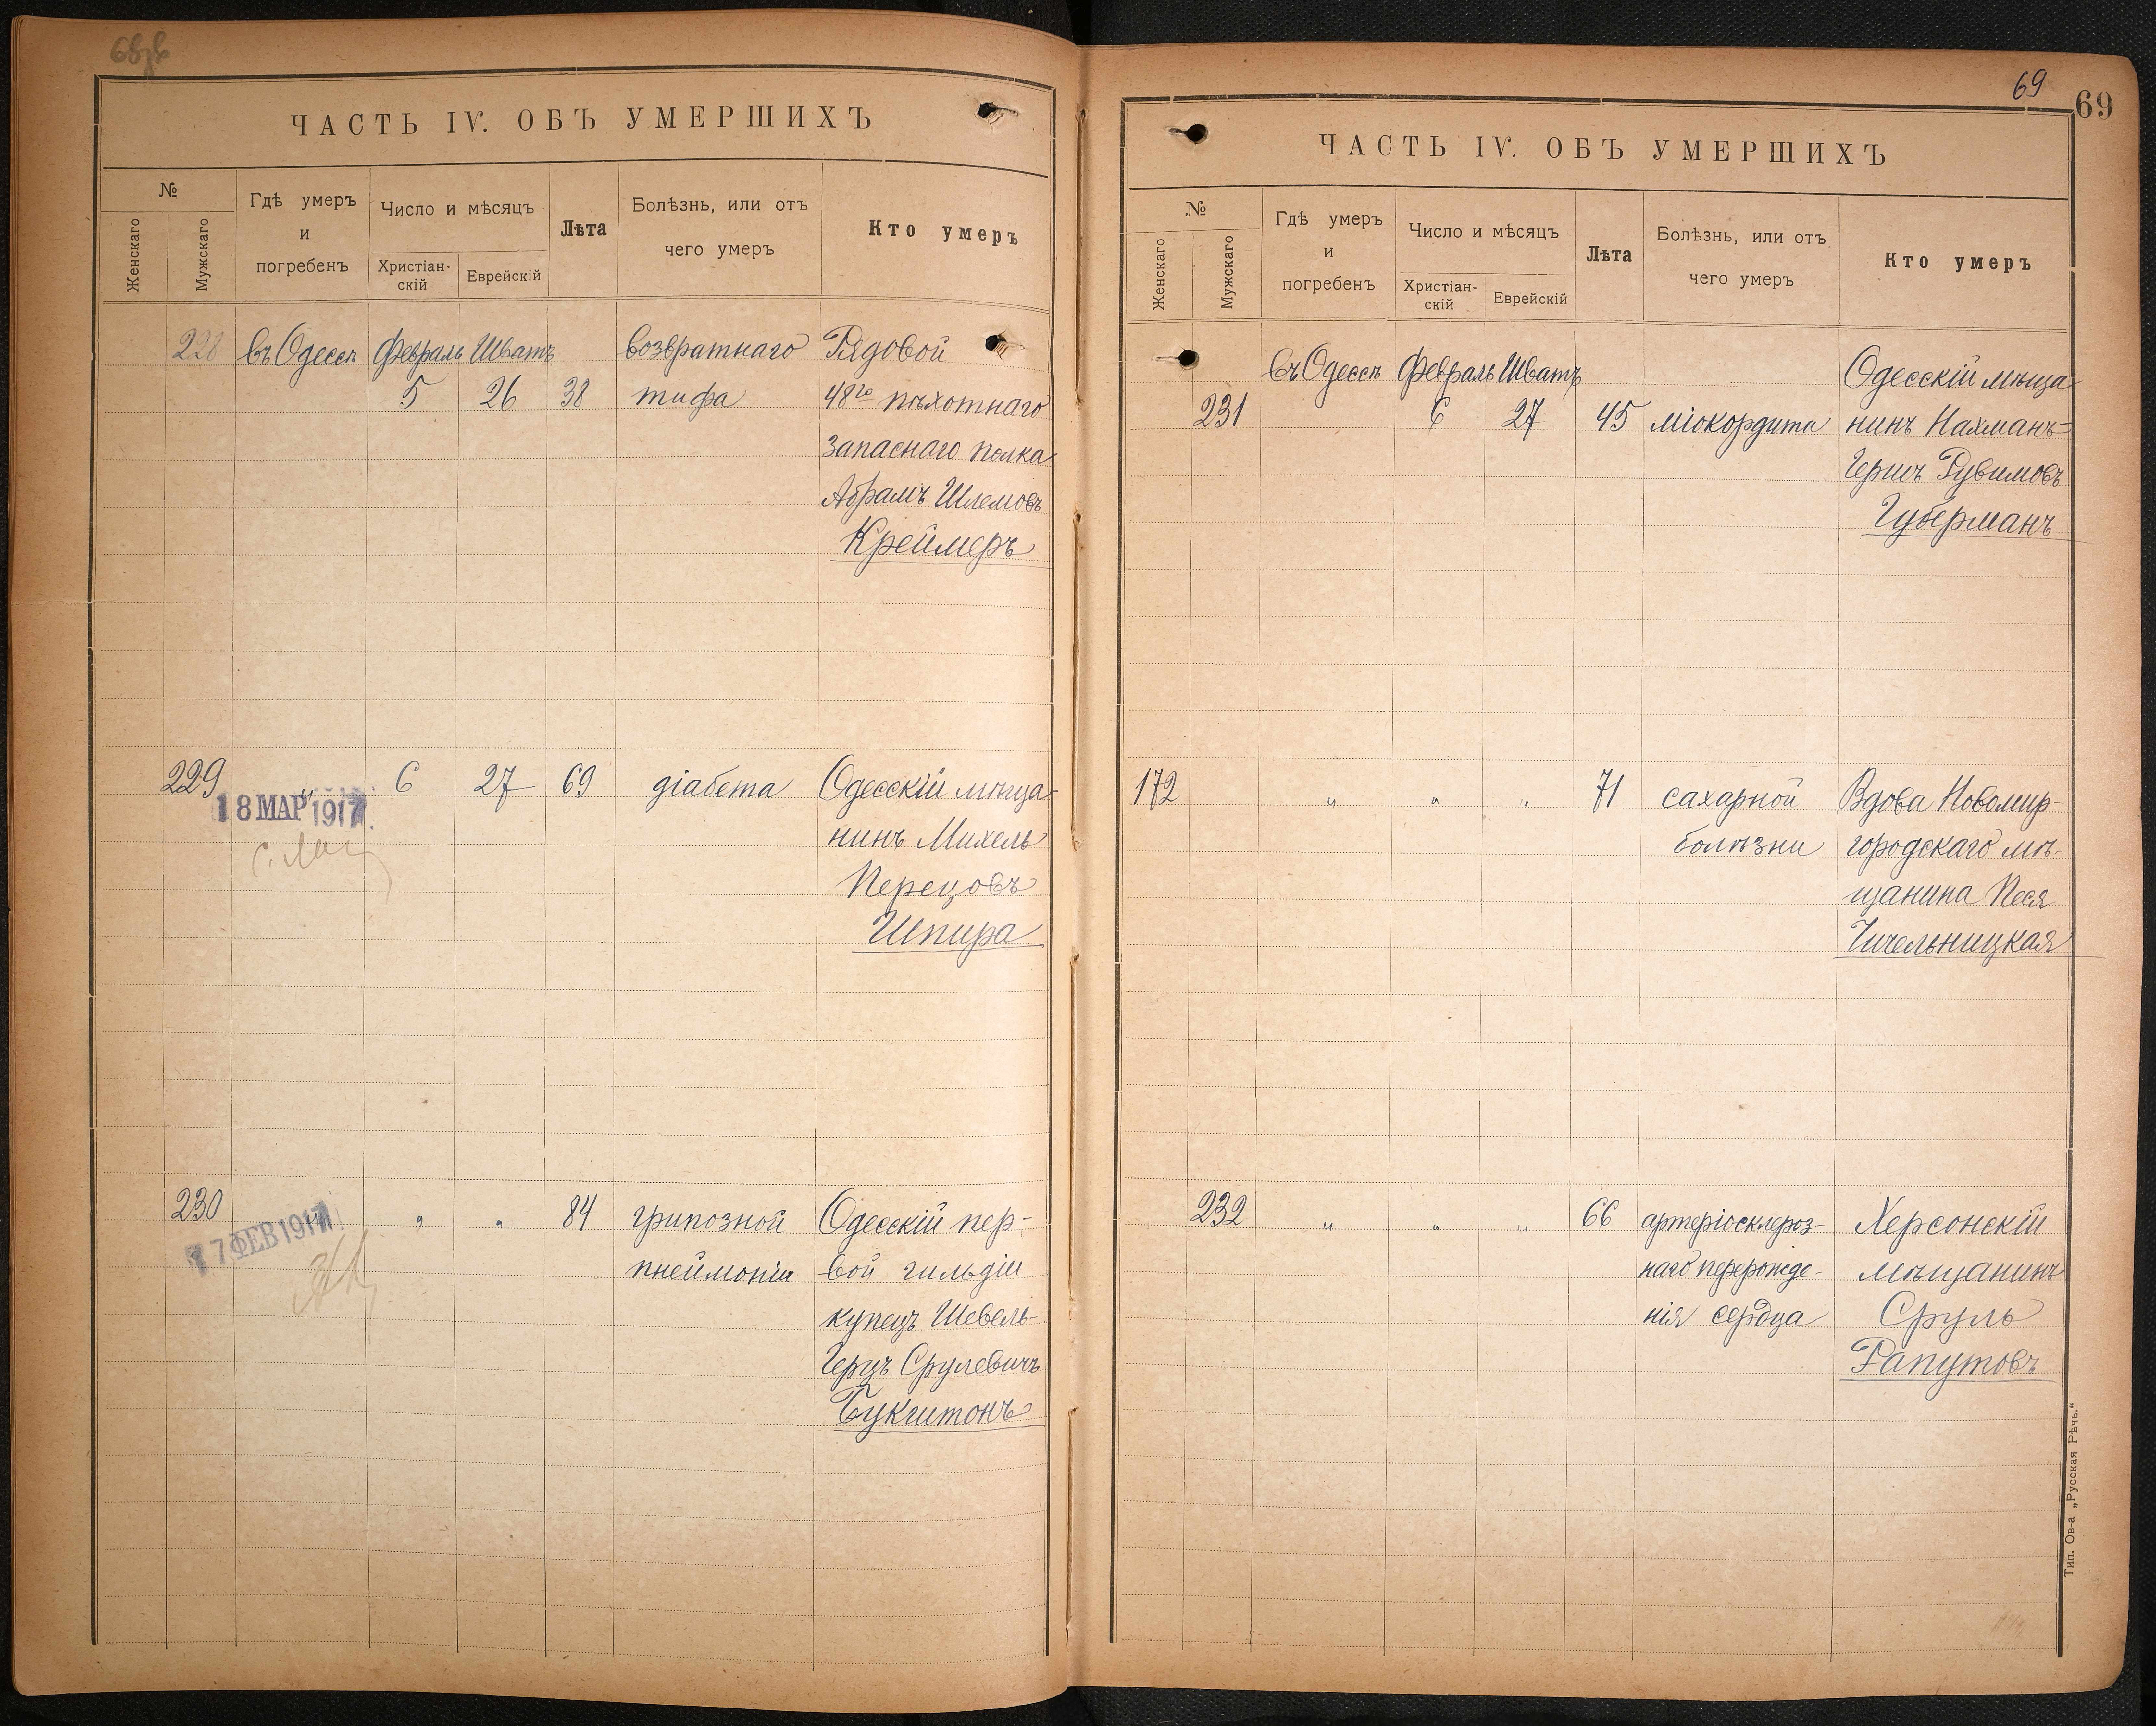 ЧАСТЬ IV. ОБЪ УМЕРШИХЪ
№
Женскаго
Мужскаго
Гдѣ умеръ
и
погребенъ
Число и мѣсяцъ
Христіан-
скій
Еврейскій
Лѣта
Болѣзнь, или отъ
чего умеръ
Кто умеръ
228 въ Одессѣ Февраль Шватъ возвратнаго Рядовой
5 26 38 тифа 48го пѣхотнаго
запаснаго полка
Абрамъ Шлемовъ
Креймеръ
229 " 6 27 69 діабета Одесскій мѣща-
18 МАР 1917
нинъ Михель
Перецовъ
Шпира
230 " " " 84 грипозной Одесскій пер-
17 ФЕВ 1917
пнеймоніи вой гильдіи
купецъ Шевель-
Герцъ Срулевичъ
Букштонъ
69
69
ЧАСТЬ IV. ОБЪ УМЕРШИХЪ
№
Женскаго
Мужскаго
Гдѣ умеръ
и
погребенъ
Число и мѣсяцъ
Христіан-
скій
Еврейскій
Лѣта
Болѣзнь, или отъ
чего умеръ
Кто умеръ
въ Одессѣ Февраль Шватъ Одесскій мѣща-
231 6 27 45 міокордита нинъ Нахманъ-
Гершъ Рувимовъ
Губерманъ
172 " " " 71 сахарной Вдова Новомир-
болѣзни городскаго мѣ-
щанина Песя
Чичельницкая
232 " " " 66 артеріосклероз- Херсонскій
наго перерожде- мѣщанинъ
нія сердца Сруль
Рапутовъ
Тип. Ов-а „Русская Рѣчь.“